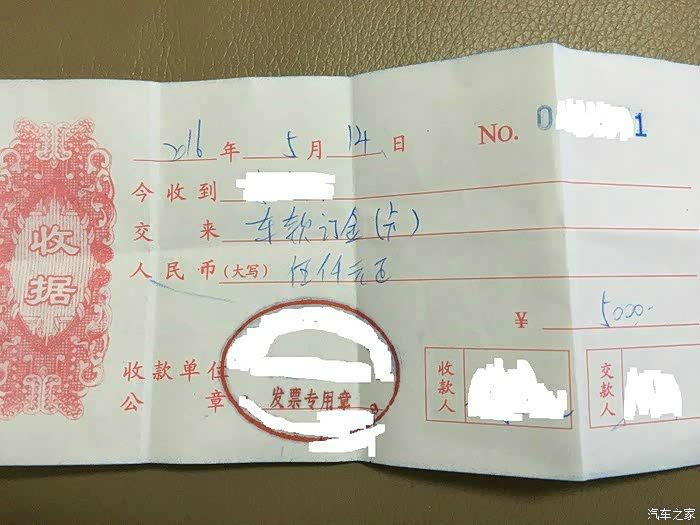 收据
2016 年 5 月 14 日 NO. 0 1
今收到
交来 车款订金(卡)
人民币(大写) 伍仟元正
¥ 5000-
收款单位
公章
发票专用章
收款人
交款人
汽车之家